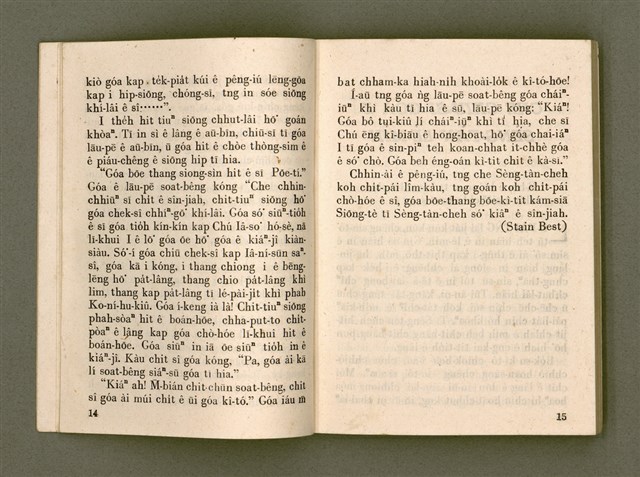 kiò góa kap te̍k-pia̍t kúi ê pêng-iú lêng-gōa
kap i hip-siōng, chóng-sī, tng in sóe siōng
khí-lâi ê sî······”.
I the̍h hit tiuⁿ siōng chhut-lâi hō͘ goán
khòaⁿ. Tī in sì ê lâng ê aū-bīn, chiū-sī tī góa
laū-pē ê aū-bīn, ū hit ê chòe thòng-sim ê
ê piáu-chêng ê siōng hip tī hia.
“Góa bōe thang siong-sìn hit ê sī Pōe-tī.”
Góa ê laū-pē soat-bêng kóng “Che chhin-
chhiūⁿ sī chi̍t ê sîn-jiah, chit-tiuⁿ siōng hō͘
góa chek-sî chhíⁿ-gō͘ khí-lâi. Góa só͘ siūⁿ-tio̍h
ê sī góa tio̍h kín-kín kap Chú Iâ-so͘ hó-sè, nā
lī-khui I ê lō͘ góa ōe hō͘ góa ê kiáⁿ-jî kiàn-
siàu. Só͘-í góa chiū chek-sî kap Iâ-ni-sūn saⁿ-
sî, góa kā i kóng, i thang chiong i ê bēng-
lēng hō͘ pa̍t-lâng, thang chio pa̍t-lâng khì
lim, thang kap pa̍t-lâng tī lé-pài-ji̍t khì phah
Ko-ní-hu-kiû. Góa í-keng ià lâ! Chit-tiuⁿ siōng
phah-sòaⁿ hit ê boán-hōe, chha-put-to chi̍t-
pòaⁿ ê lâng kap góa chò-hóe lī-khui hit ê
boán-hōe. Góa siūⁿ in iā ōe siūⁿ tio̍h in ê
kiáⁿ-jî. Kàu chit sî góa kóng, “Pa, góa ài kā
lí soat-bêng siáⁿ-sū tī hia.”
“Kiáⁿ ah! M̄-bián chit-chūn soat-bêng, chit
sî góa ài múi chi̍t ê ūi góa kî-tó.” Góa iáu m̄
14
bat chham-ka hiah-ni̍h khoài-lo̍k ê kî-tó-hōe!
Í-aū tng góa ǹg laū-pē soat-bêng góa cháiⁿ-
iūⁿ khì kàu tī hia ê sū, laū-pē kóng: “Kiáⁿ!
Góa bô tui-kiû lí cháiⁿ-iūⁿ khì tī hia, che sī
Chú ēng kî-biāu ê hong-hoat, hō͘ góa chai-iáⁿ
I tī góa ê sin-piⁿ teh koan-chhat it-chhè góa
ê só͘ chò. Góa beh éng-oán kì-tit chit ê kà-sī.”
Chhin-ài ê pêng-iú, tng che Sèng-tàn-cheh
koh chi̍t-pái lîm-kàu, tng goán koh chi̍t-pái
chò-hóe ê sî, góa bōe-thang bōe-kì-tit kám-siā
Siōng-tè tī Sèng-tàn-cheh só͘ kiâⁿ ê sîn-jiah.
(Stain Best)
15